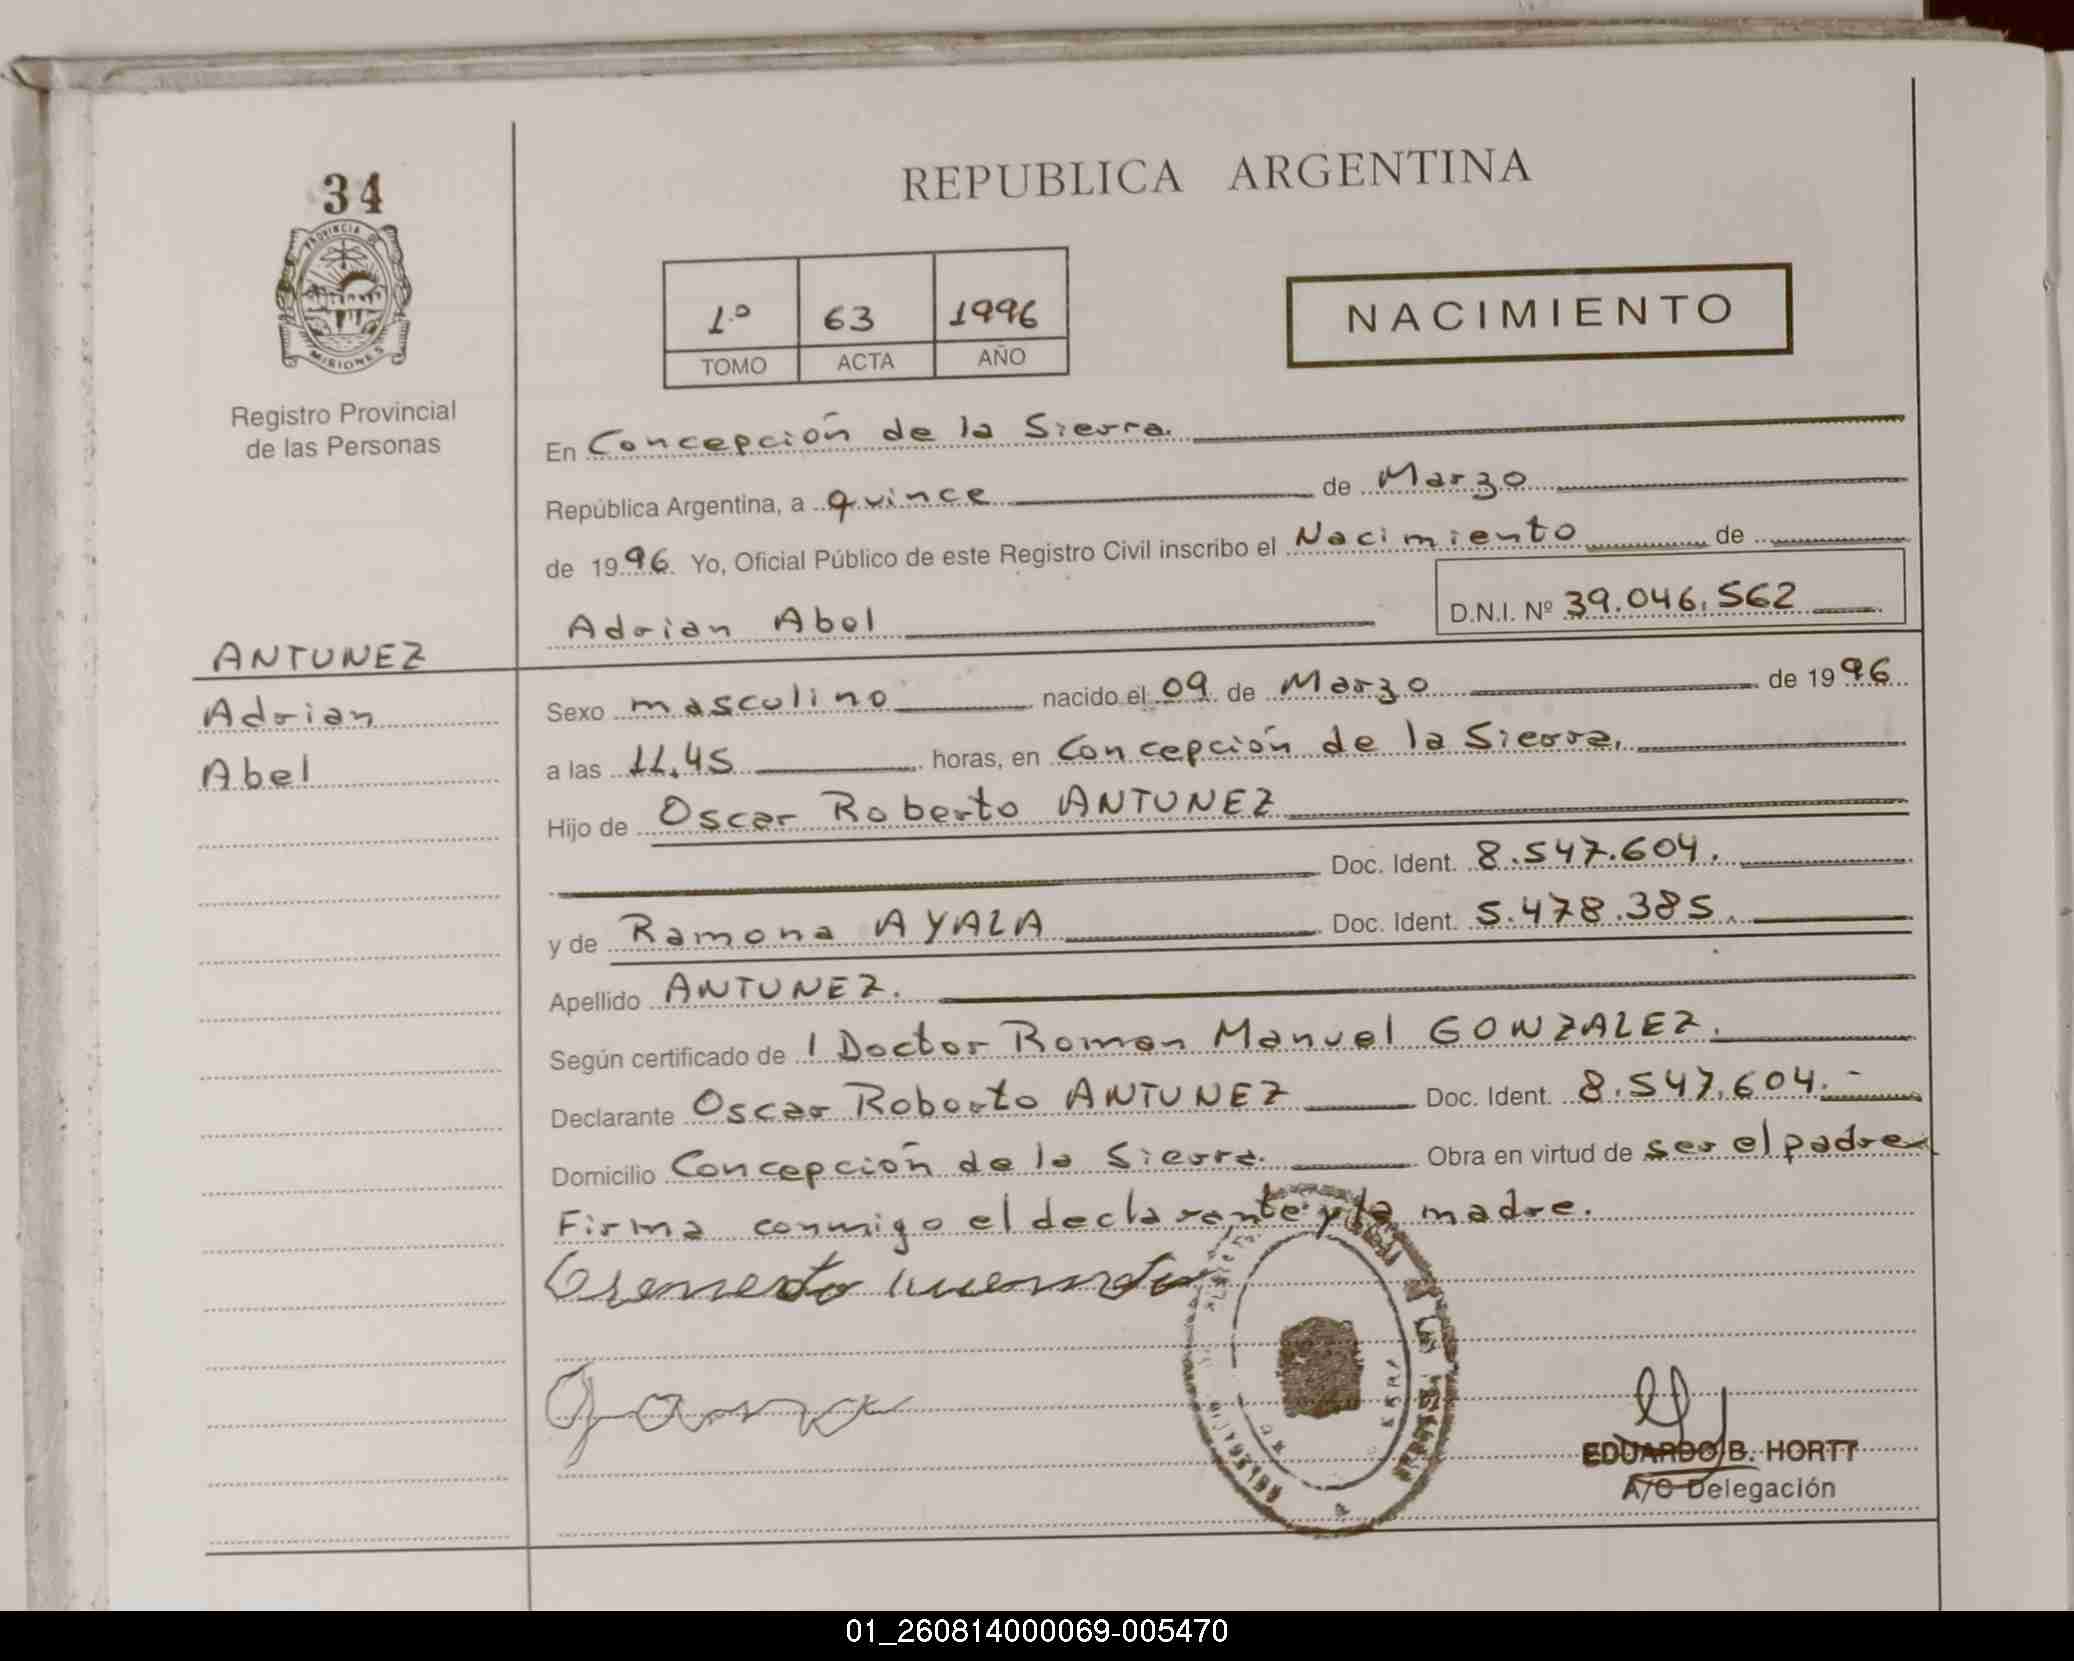 34
PROVINCIA DE
MISIONES
Registro Provincial
de las Personas
REPUBLICA ARGENTINA
1º 63 1996
TOMO ACTA AÑO
NACIMIENTO
En Concepción de la Sierra.
República Argentina, a quince de Marzo
de 1996. Yo, Oficial Público de este Registro Civil inscribo el Nacimiento de
Adrian Abel D.N.I. Nº 39.046.562
ANTUNEZ
Adrian
Abel
Sexo masculino nacido el 09 de Marzo de 1996
a las 11,45 horas, en Concepción de la Sierra,
Hijo de Oscar Roberto ANTUNEZ
Doc. Ident. 8.547.604.
y de Ramona AYALA Doc. Ident. 5.478.385.
Apellido ANTUNEZ.
Según certificado de l Doctor Roman Manuel GONZALEZ.
Declarante Oscar Roberto ANTUNEZ Doc. Ident. 8.547.604.-
Domicilio Concepción de la Sierra. Obra en virtud de ser el padre
Firma conmigo el declarante y la madre.
EDUARDO B. HORTT
A/C Delegación
01_260814000069-005470